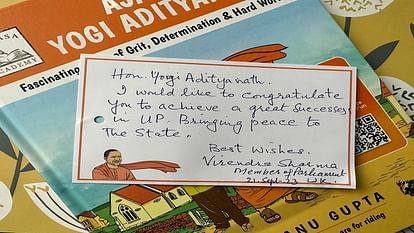 ASA
ACADEMY
YOGI ADITYA
Fascinating of Grit, Determination & Hard Wor
Hon. Yogi Adityanath.
I would like to congratulate
you to achieve a great successes
in UP. Bringing peace to
The State..
Best Wishes.
Virendra Sharma
Member of Parliament
21. Sept. 23 UK.
NU GUPTA
are for riding